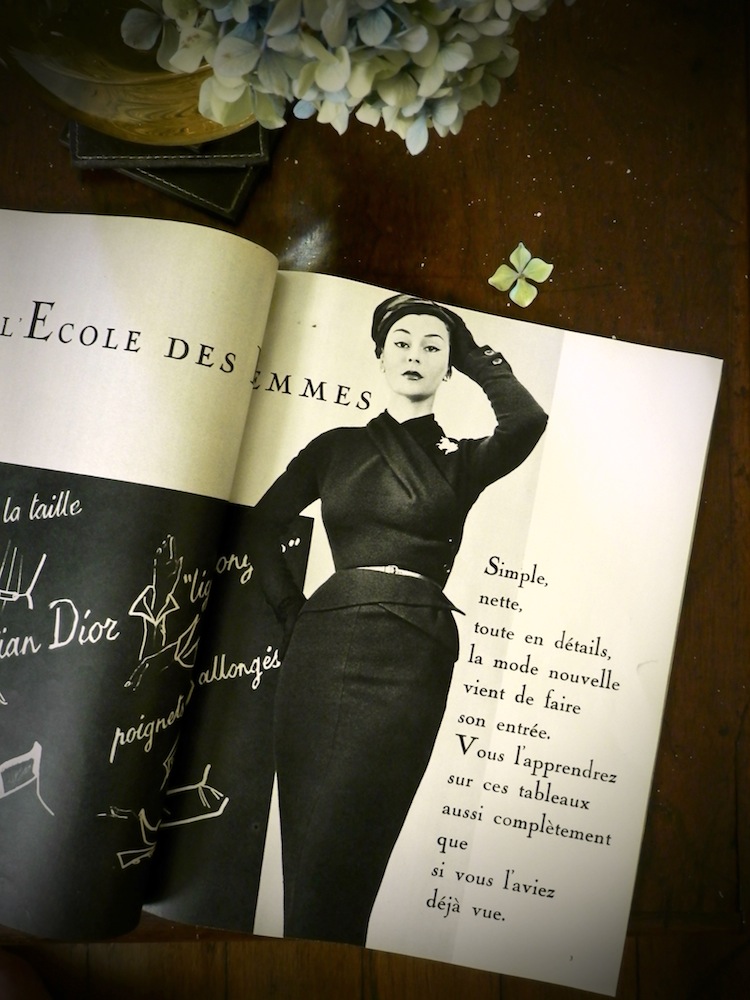 l'Ecole des Femmes
la taille
Dior
allongés
Simple,
nette,
toute en détails,
la mode nouvelle
vient de faire
son entrée.
Vous l'apprendrez
sur ces tableaux
aussi complètement
que
si vous l'aviez
déjà vue.